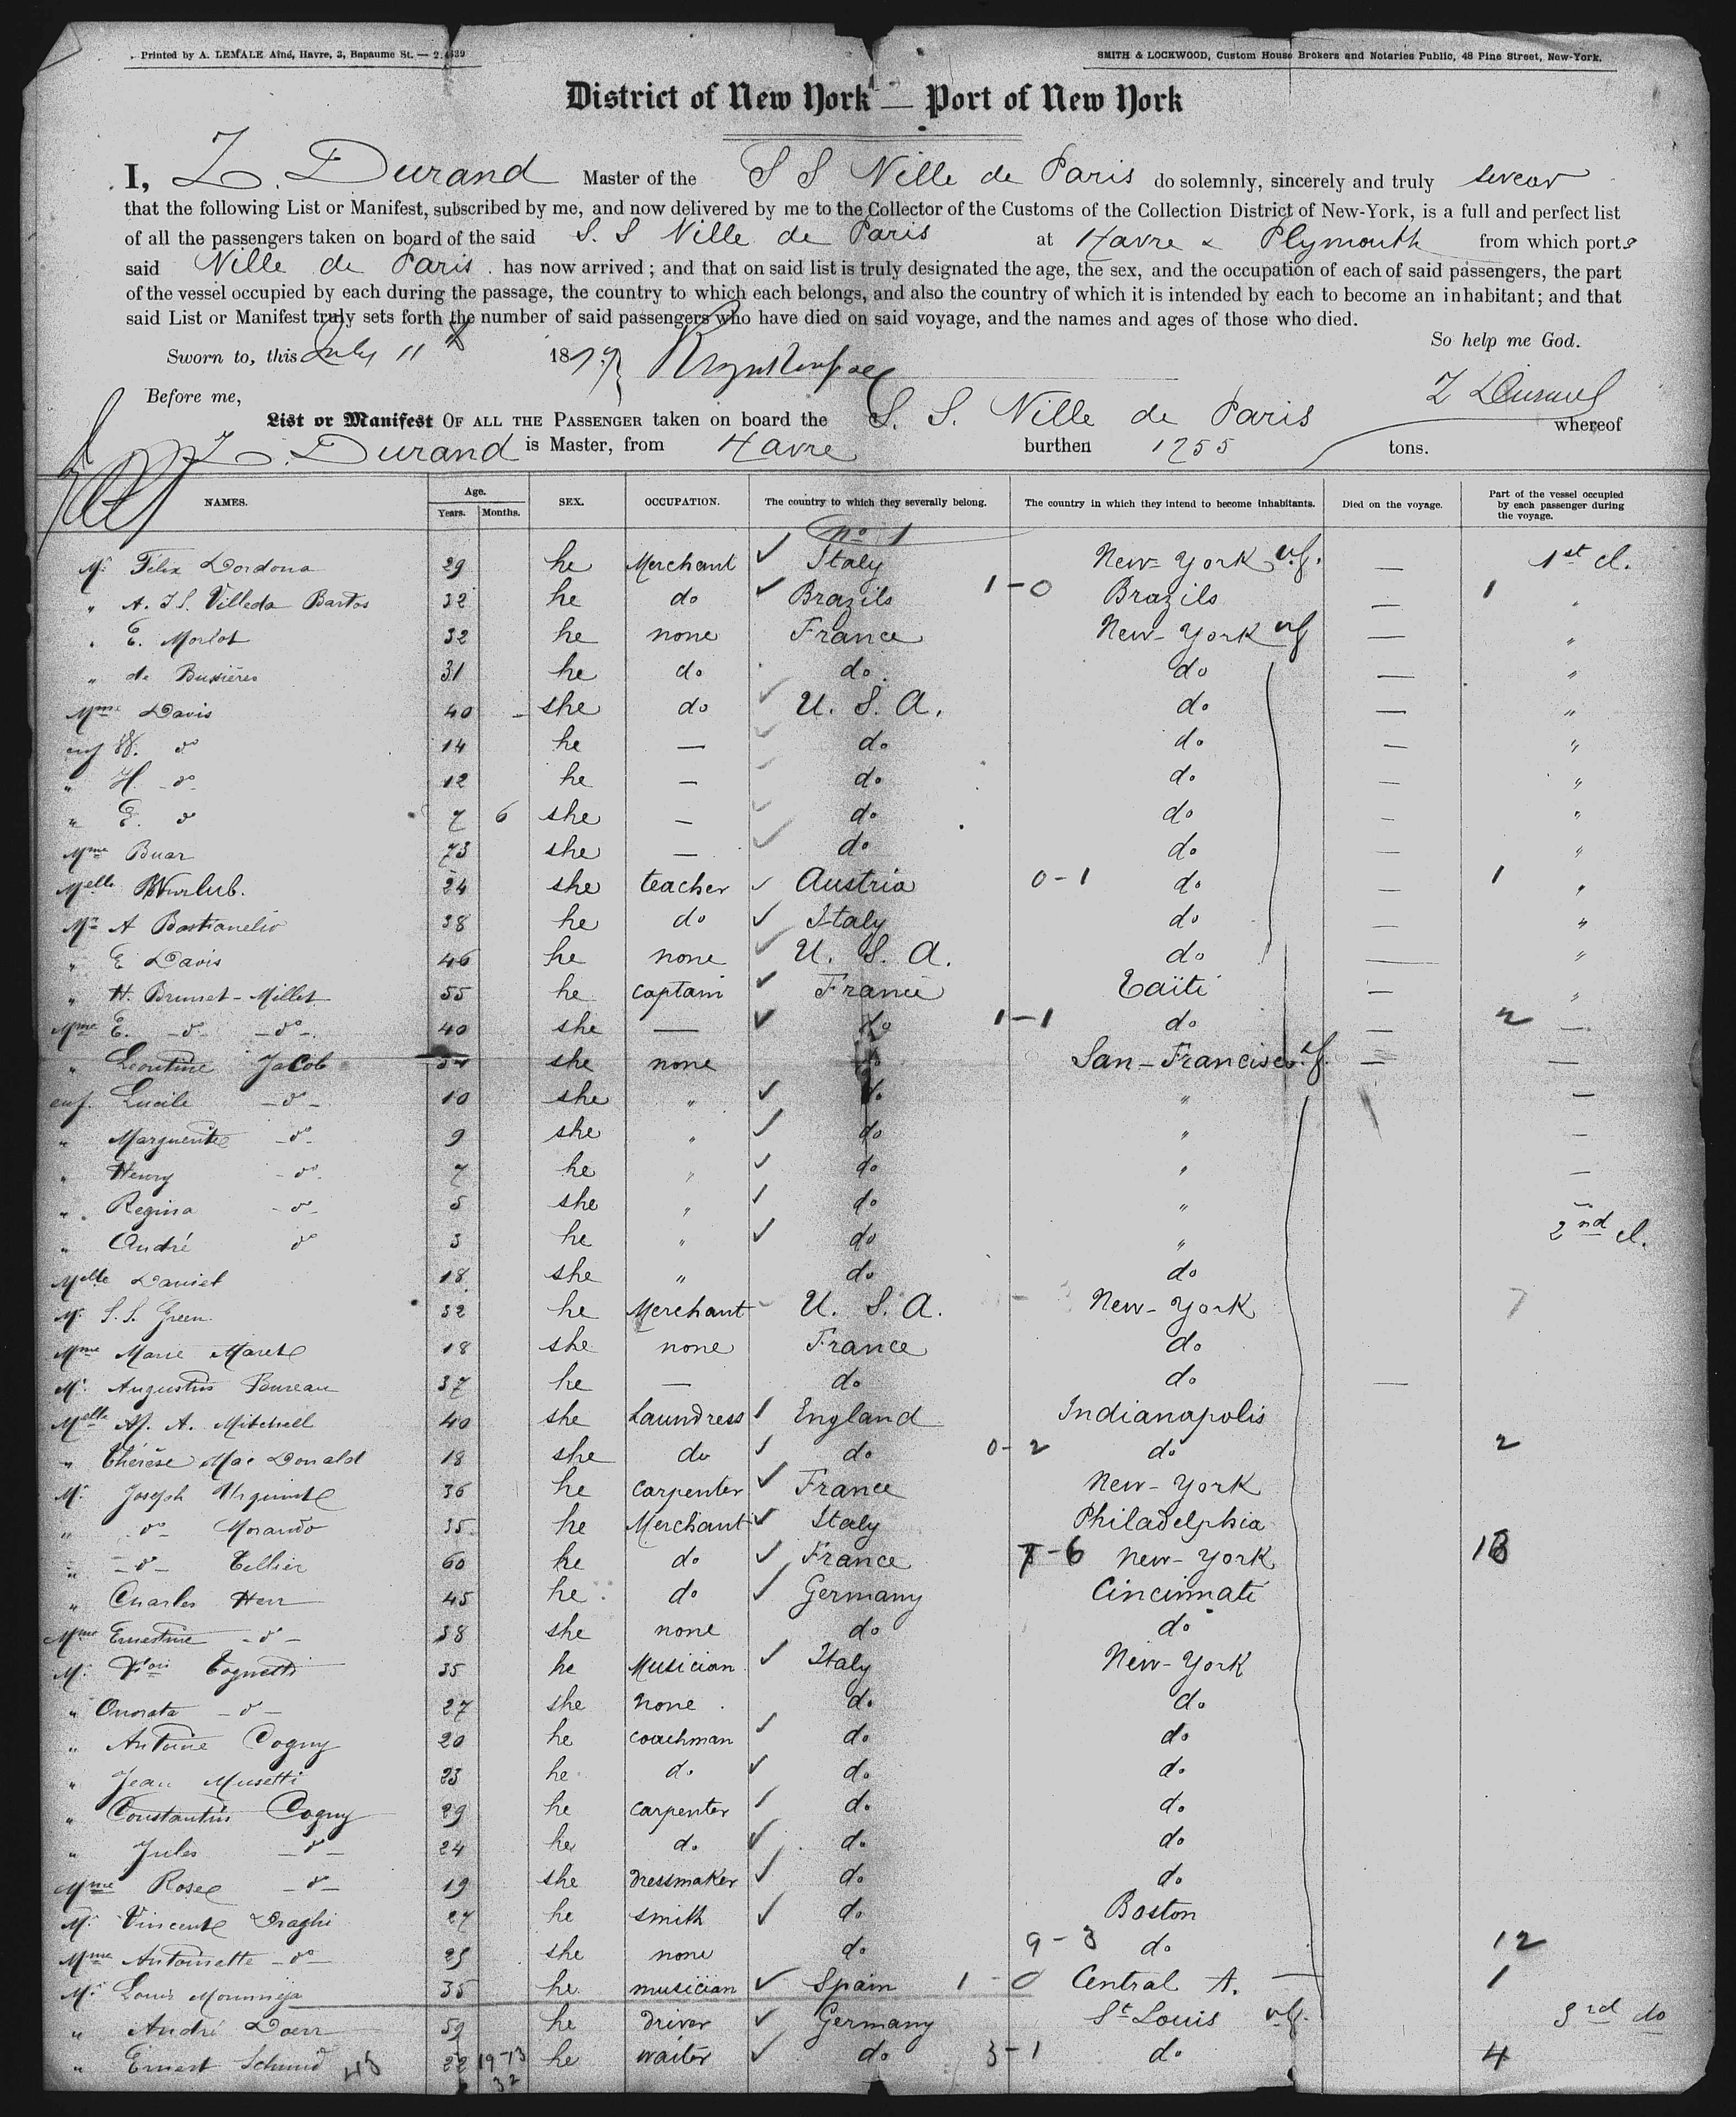 Printed by A. LEMALE Aîné, Havre, 3, Bapaume St. — 2.4639
SMITH & LOCKWOOD, Custom House Brokers and Notaries Public, 48 Pine Street, New-York.
District of New York — Port of New York
I, Z. Durand Master of the S S Ville de Paris do solemnly, sincerely and truly swear
that the following List or Manifest, subscribed by me, and now delivered by me to the Collector of the Customs of the Collection District of New-York, is a full and perfect list
of all the passengers taken on board of the said S. S Ville de Paris at Havre & Plymouth from which ports
said Ville de Paris. has now arrived; and that on said list is truly designated the age, the sex, and the occupation of each of said passengers, the part
of the vessel occupied by each during the passage, the country to which each belongs, and also the country of which it is intended by each to become an inhabitant; and that
said List or Manifest truly sets forth the number of said passengers who have died on said voyage, and the names and ages of those who died.
So help me God.
Sworn to, this July 11 1879
Before me,
Z Durand
List or Manifest OF ALL THE PASSENGER taken on board the S. S. Ville de Paris whereof
Z. Durand is Master, from Havre burthen 1255 tons.
NAMES. Age. Years. Months. SEX. OCCUPATION. The country to which they severally belong. The country in which they intend to become inhabitants. Died on the voyage. Part of the vessel occupied by each passenger during the voyage.
no 1
Mr. Felix Dordona 29 he Merchant ✓ Italy New-York — 1st cl.
" A. J. S. Villeda Bastos 32 he do ✓ Brazils 1-0 Brazils — 1 "
" E. Morlot 32 he none France New-York — "
" de Busières 31 he do do. do — "
Mme Davis 40 she do ✓ U. S. A. do — "
enf W. do 14 he — ✓ do do — "
" H. do 12 he — ✓ do do — "
" E. do 7 6 she — ✓ do do — "
Mme Buar 73 she — ✓ do do — "
Melle 24 she teacher ✓ Austria 0-1 do — 1 "
Mr A Bastianelio 38 he do ✓ Italy do — "
" E Davis 46 he none ✓ U. S. A. do — "
" H. Brunet-Millet 55 he captain ✓ France Taïti — "
Mme E. -do- -do-. 40 she — ✓ do 1-1 do — 2 —
" Leontine Jacob she none San-Francisco — —
enf. Lucile -do- 10 she " ✓ do " —
" Marguerite -do- 9 she " ✓ do " —
" Henry -do- 7 he " ✓ do " —
" Regina -do- 5 she " ✓ do " —
" André do 3 he " ✓ do " 2nd cl.
Melle Daniel 18 she " do do
Mr. S. S. Green 32 he Merchant U. S. A. New-York 7
Mme Marie Maret 18 she none France do
Mr. Augustus Bureau 37 he — do do —
Melle M. A. Mitchell 40 she Laundress ✓ England Indianapolis
" Thérèse Mac Donald 18 she do ✓ do 0-2 do 2
Mr. Joseph 36 he carpenter ✓ France New-York
" -do- Morando 35 he Merchant ✓ Italy Philadelphia
" -do- Tellier 60 he do ✓ France 7-6 New-York 13
" Charles Herr 45 he do ✓ Germany Cincinnati
Mme Ernestine -do- 38 she none do do
Mr. Cognetti 35 he Musician ✓ Italy New-York
" Onorata -do- 27 she none do do
" Antoine Cogny 20 he coachman ✓ do do
" Jean Musetti 23 he do ✓ do do
" Constantin Cogny 29 he carpenter ✓ do do
" Jules -do- 24 he do ✓ do do
Mme Rose -do- 19 she dressmaker ✓ do do
Mr. Vincent Draghi 27 he smith ✓ do Boston
Mme Antoinatte -do- 25 she none do 9-3 do 12
Mr. Louis Mounnéja 35 he musician ✓ Spain 1-0 Central A. — 1
" André Doerr 59 he driver ✓ Germany St Louis 3rd do
" Ernest Schmid 22 he waiter ✓ do 3-1 do 4
43 19-13
32